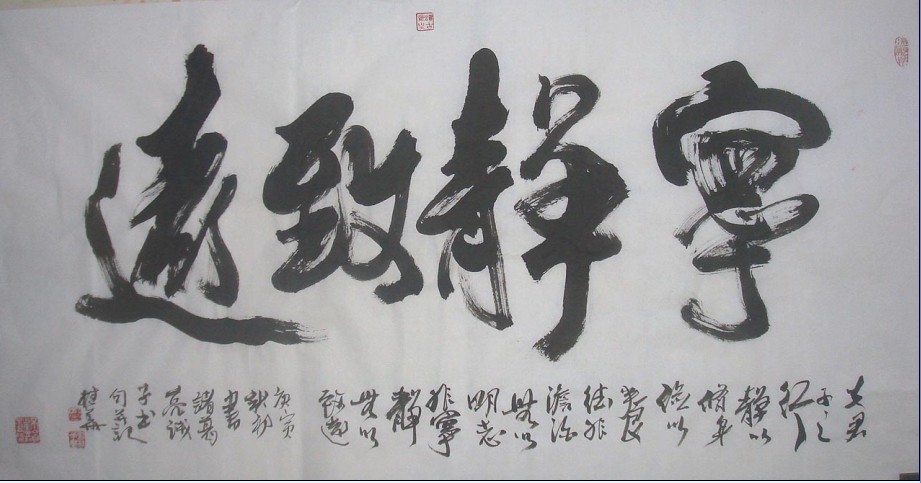 寧靜致遠
夫君
子之
行
靜以
修身
儉以
養
德非
澹泊
無以
明志
非寧
靜
無以
致遠
庚寅
諸葛
亮誡
子書
句